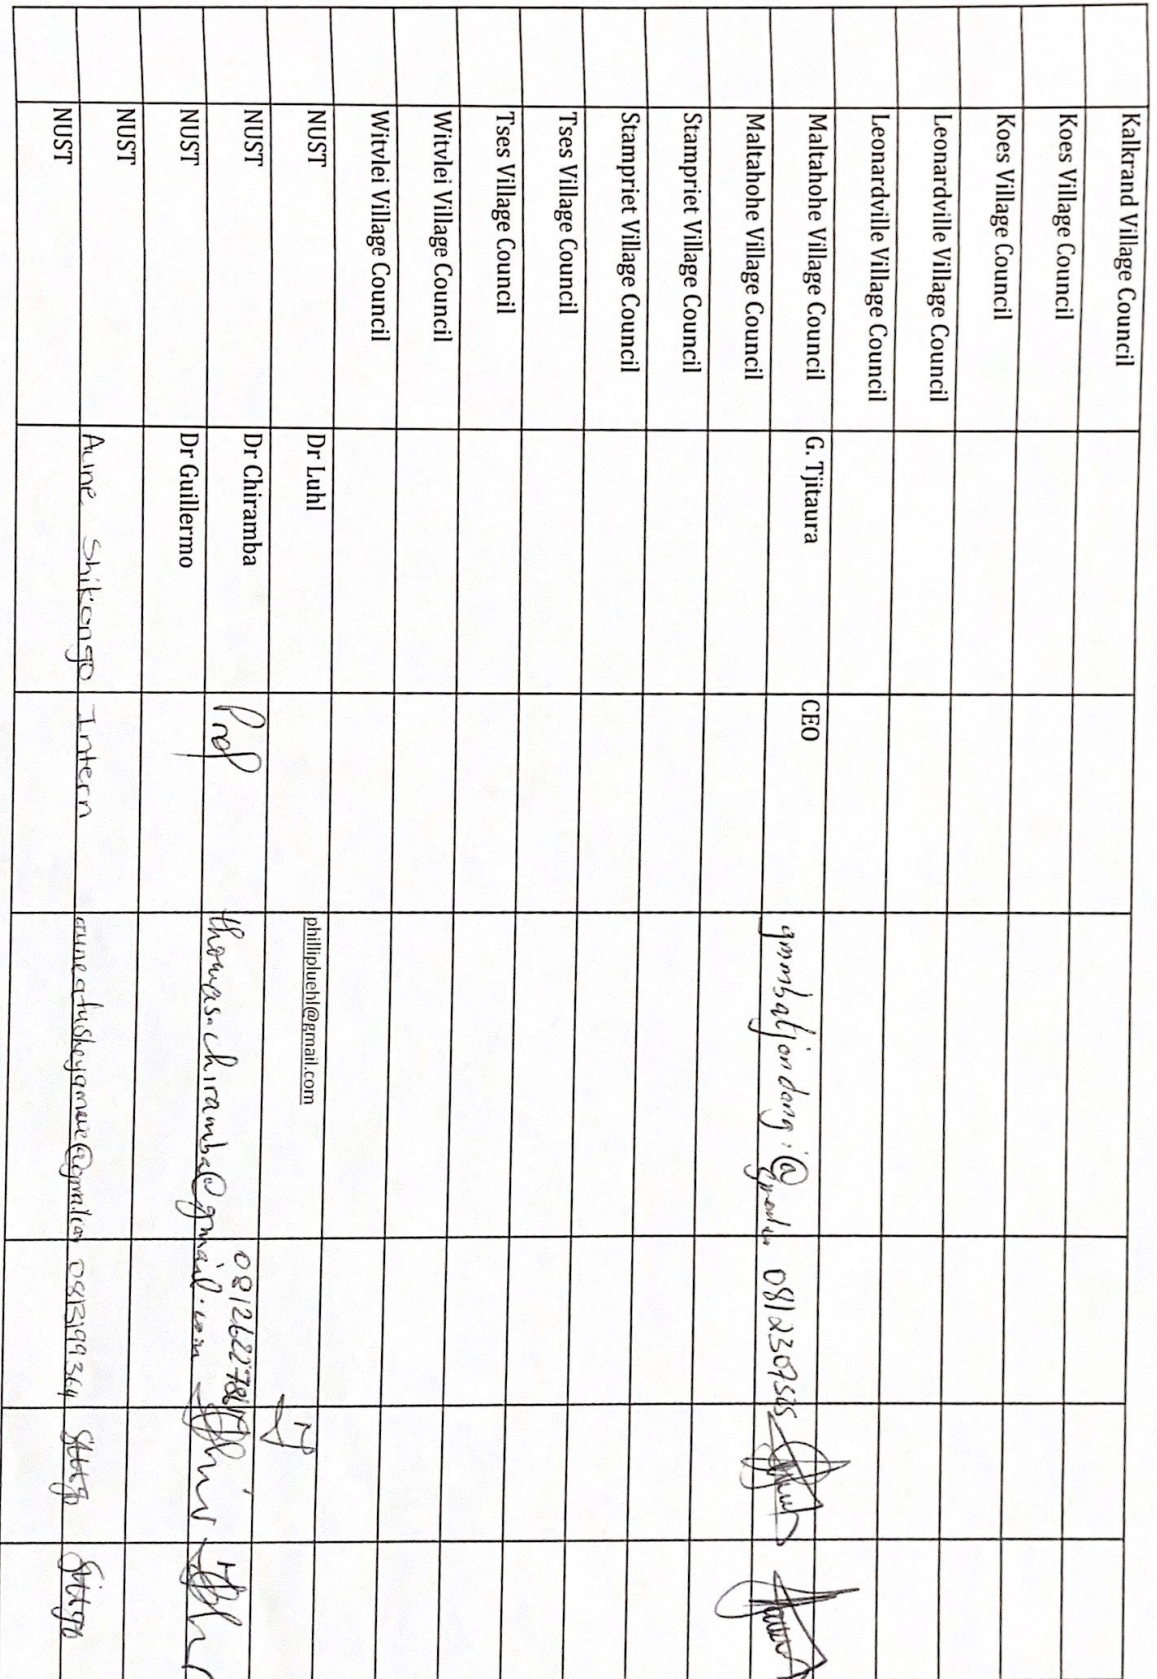 Kalkrand Village Council
Koes Village Council
Koes Village Council
Leonardville Village Council
Leonardville Village Council
Maltahohe Village Council G. Tjitaura CEO 0812309525
Maltahohe Village Council
Stampriet Village Council
Stampriet Village Council
Tses Village Council
Tses Village Council
Witvlei Village Council
Witvlei Village Council
NUST Dr Luhl phillipluehl@gmail.com
NUST Dr Chiramba Prof thomas.chiramba@gmail.com
NUST Dr Guillermo
NUST Aune Shikongo Intern 0813199364
NUST